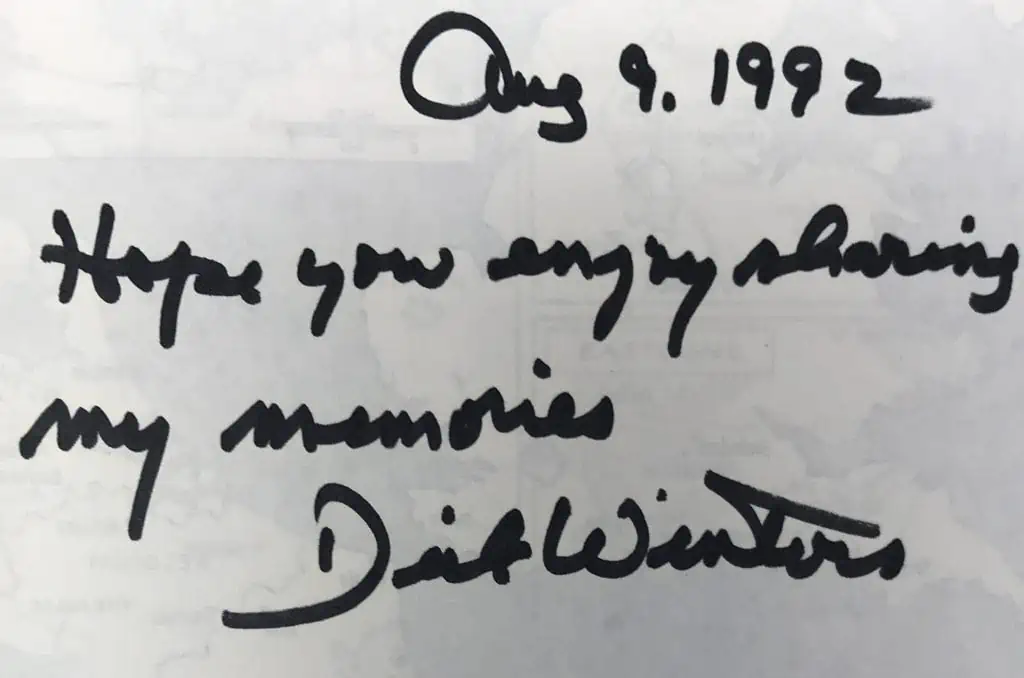 Aug 9. 1992
Hope you enjoy sharing
my memories
Dick Winters